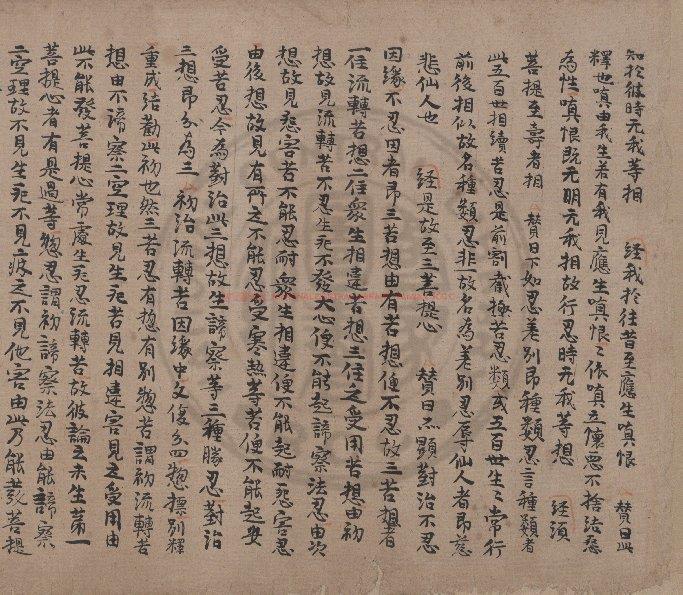 知於彼時无我等相 經我於往昔至應生嗔恨 賛曰此
釋也嗔由我生若有我見應生嗔恨〻〻依嗔立懷惡不捨結怨
為性嗔恨既无明无我相故行忍時无我等想 經須
菩提至壽者相 賛曰下如忍差別即種類忍言種類者
此五百世相續苦忍是前割截極苦忍類或五百世生〻常行
前後相似故名種類忍非一故名為差別忍辱仙人者即慈
悲仙人也 經是故至三菩提心 賛曰下顯對治不忍
因緣不忍因者即三苦想由有苦想便不忍故三苦想者
一住流轉苦想二住衆生相違苦想三住乏受用苦想由初
想故見流轉苦不忍生死不發大心便不能起諦察法忍由次
想故見怨害苦不能忍耐衆生相違便不能起耐怨害忍
由後想故見有所乏不能忍受寒熱等苦便不能起安
受苦忍今為對治此三想故生諦察等三種勝忍對治
三想即分為三 初治流轉苦因緣中文復分四惣標別釋
重成結勸此初也然三苦忍有惣有別惣者謂初流轉苦
想由不諦察二空理故見生死苦見相違害見乏受用由
此不能發菩提心常處生死忍流轉苦故彼論云未生第一
菩提心者有是過等惣忍謂初諦察法忍由能諦察
二空理故不見生死不見疲乏不見他害由此乃能發菩提